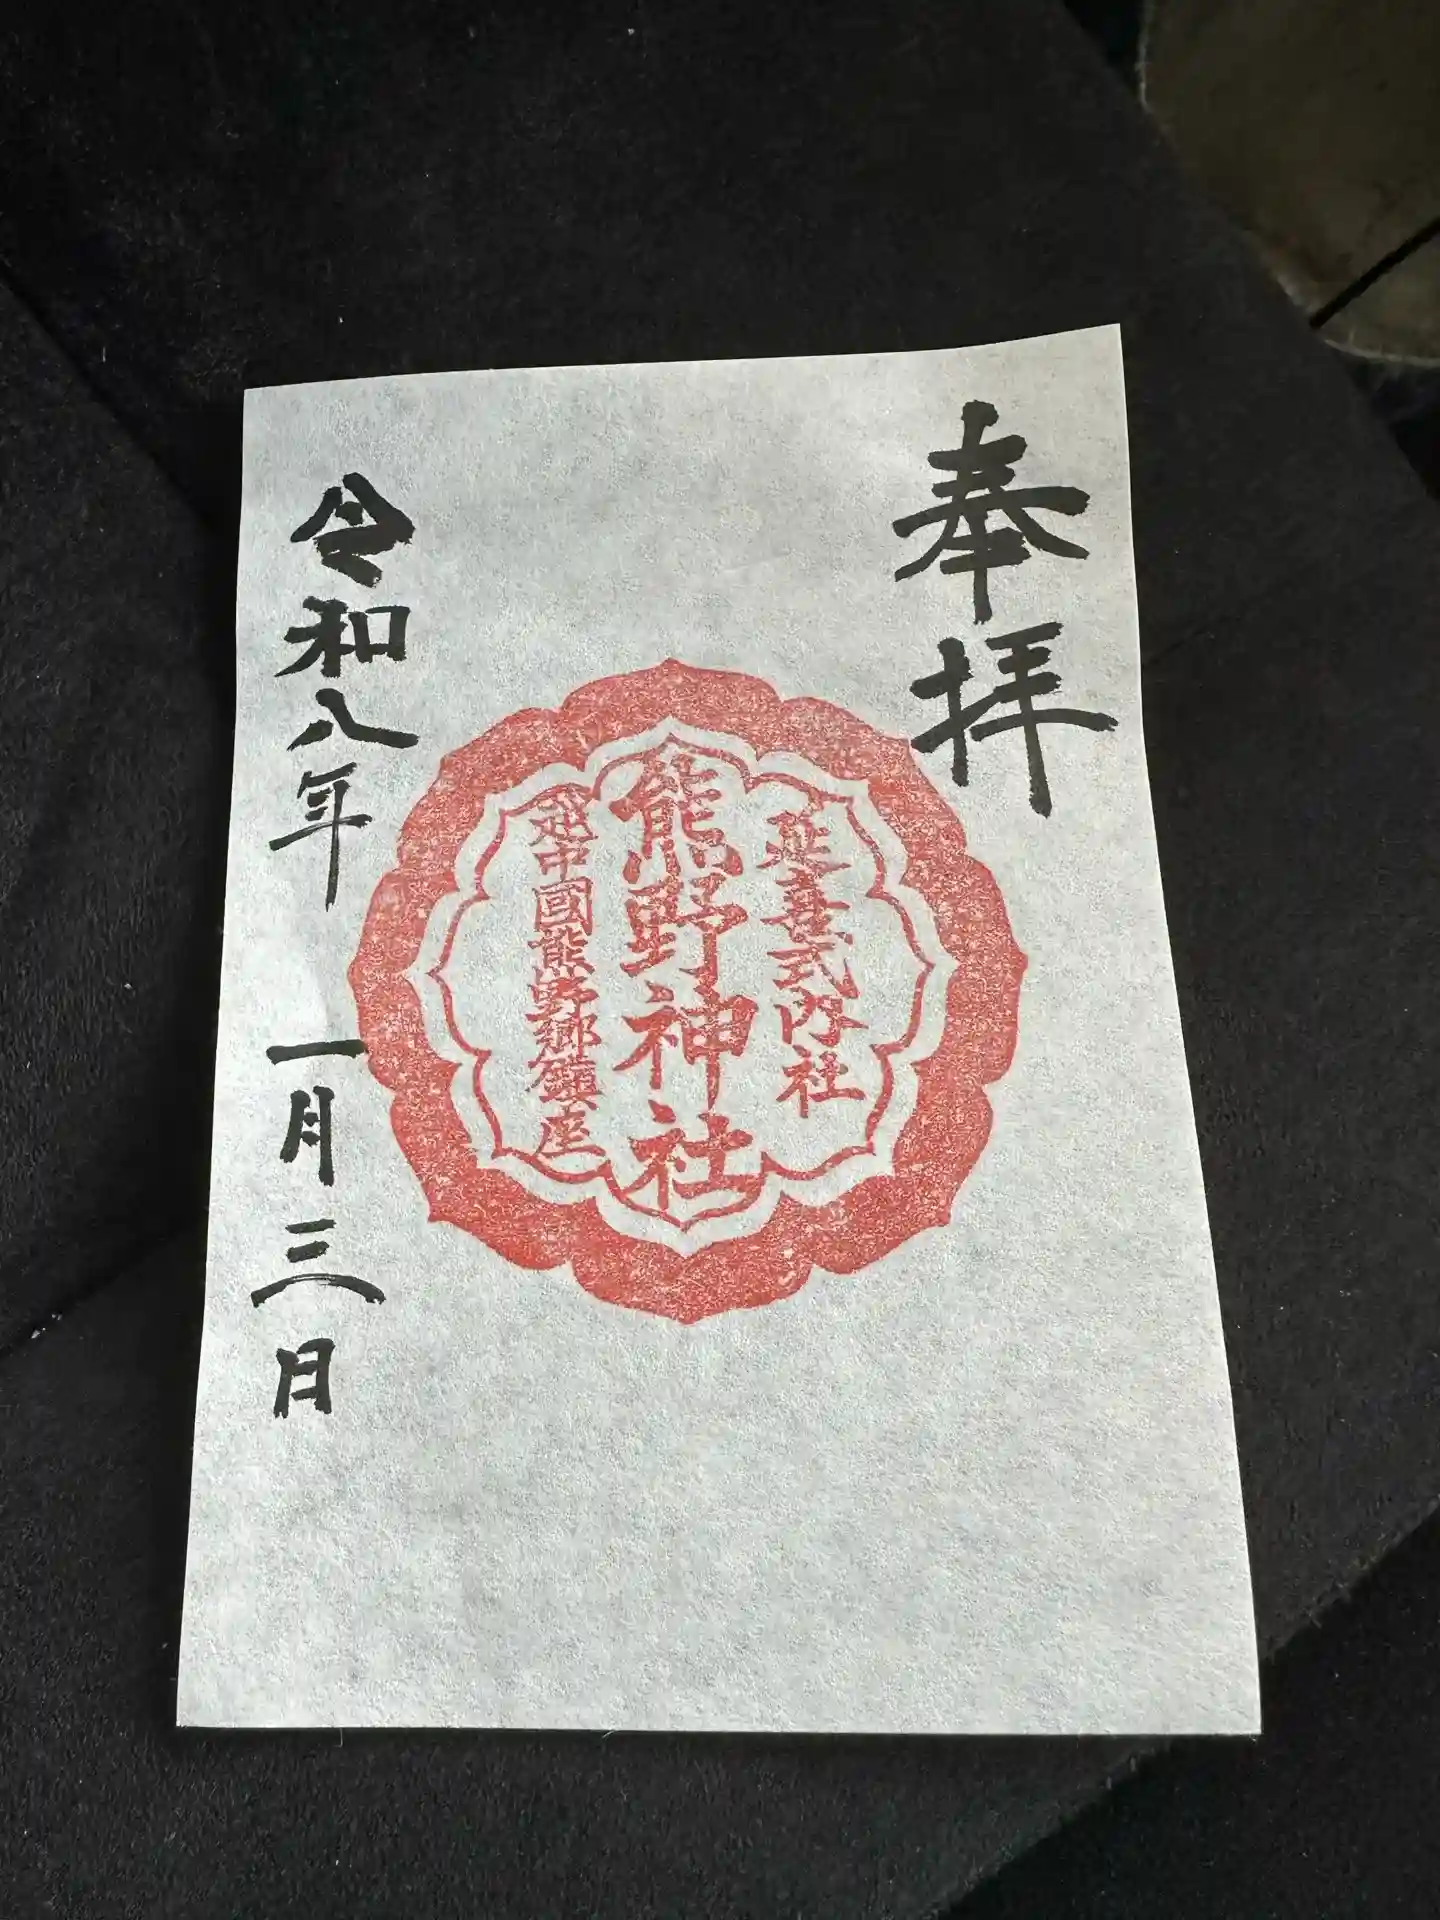 奉拝
延喜式内社
熊野神社
越中國熊野郷鎮座
令和八年 一月三日